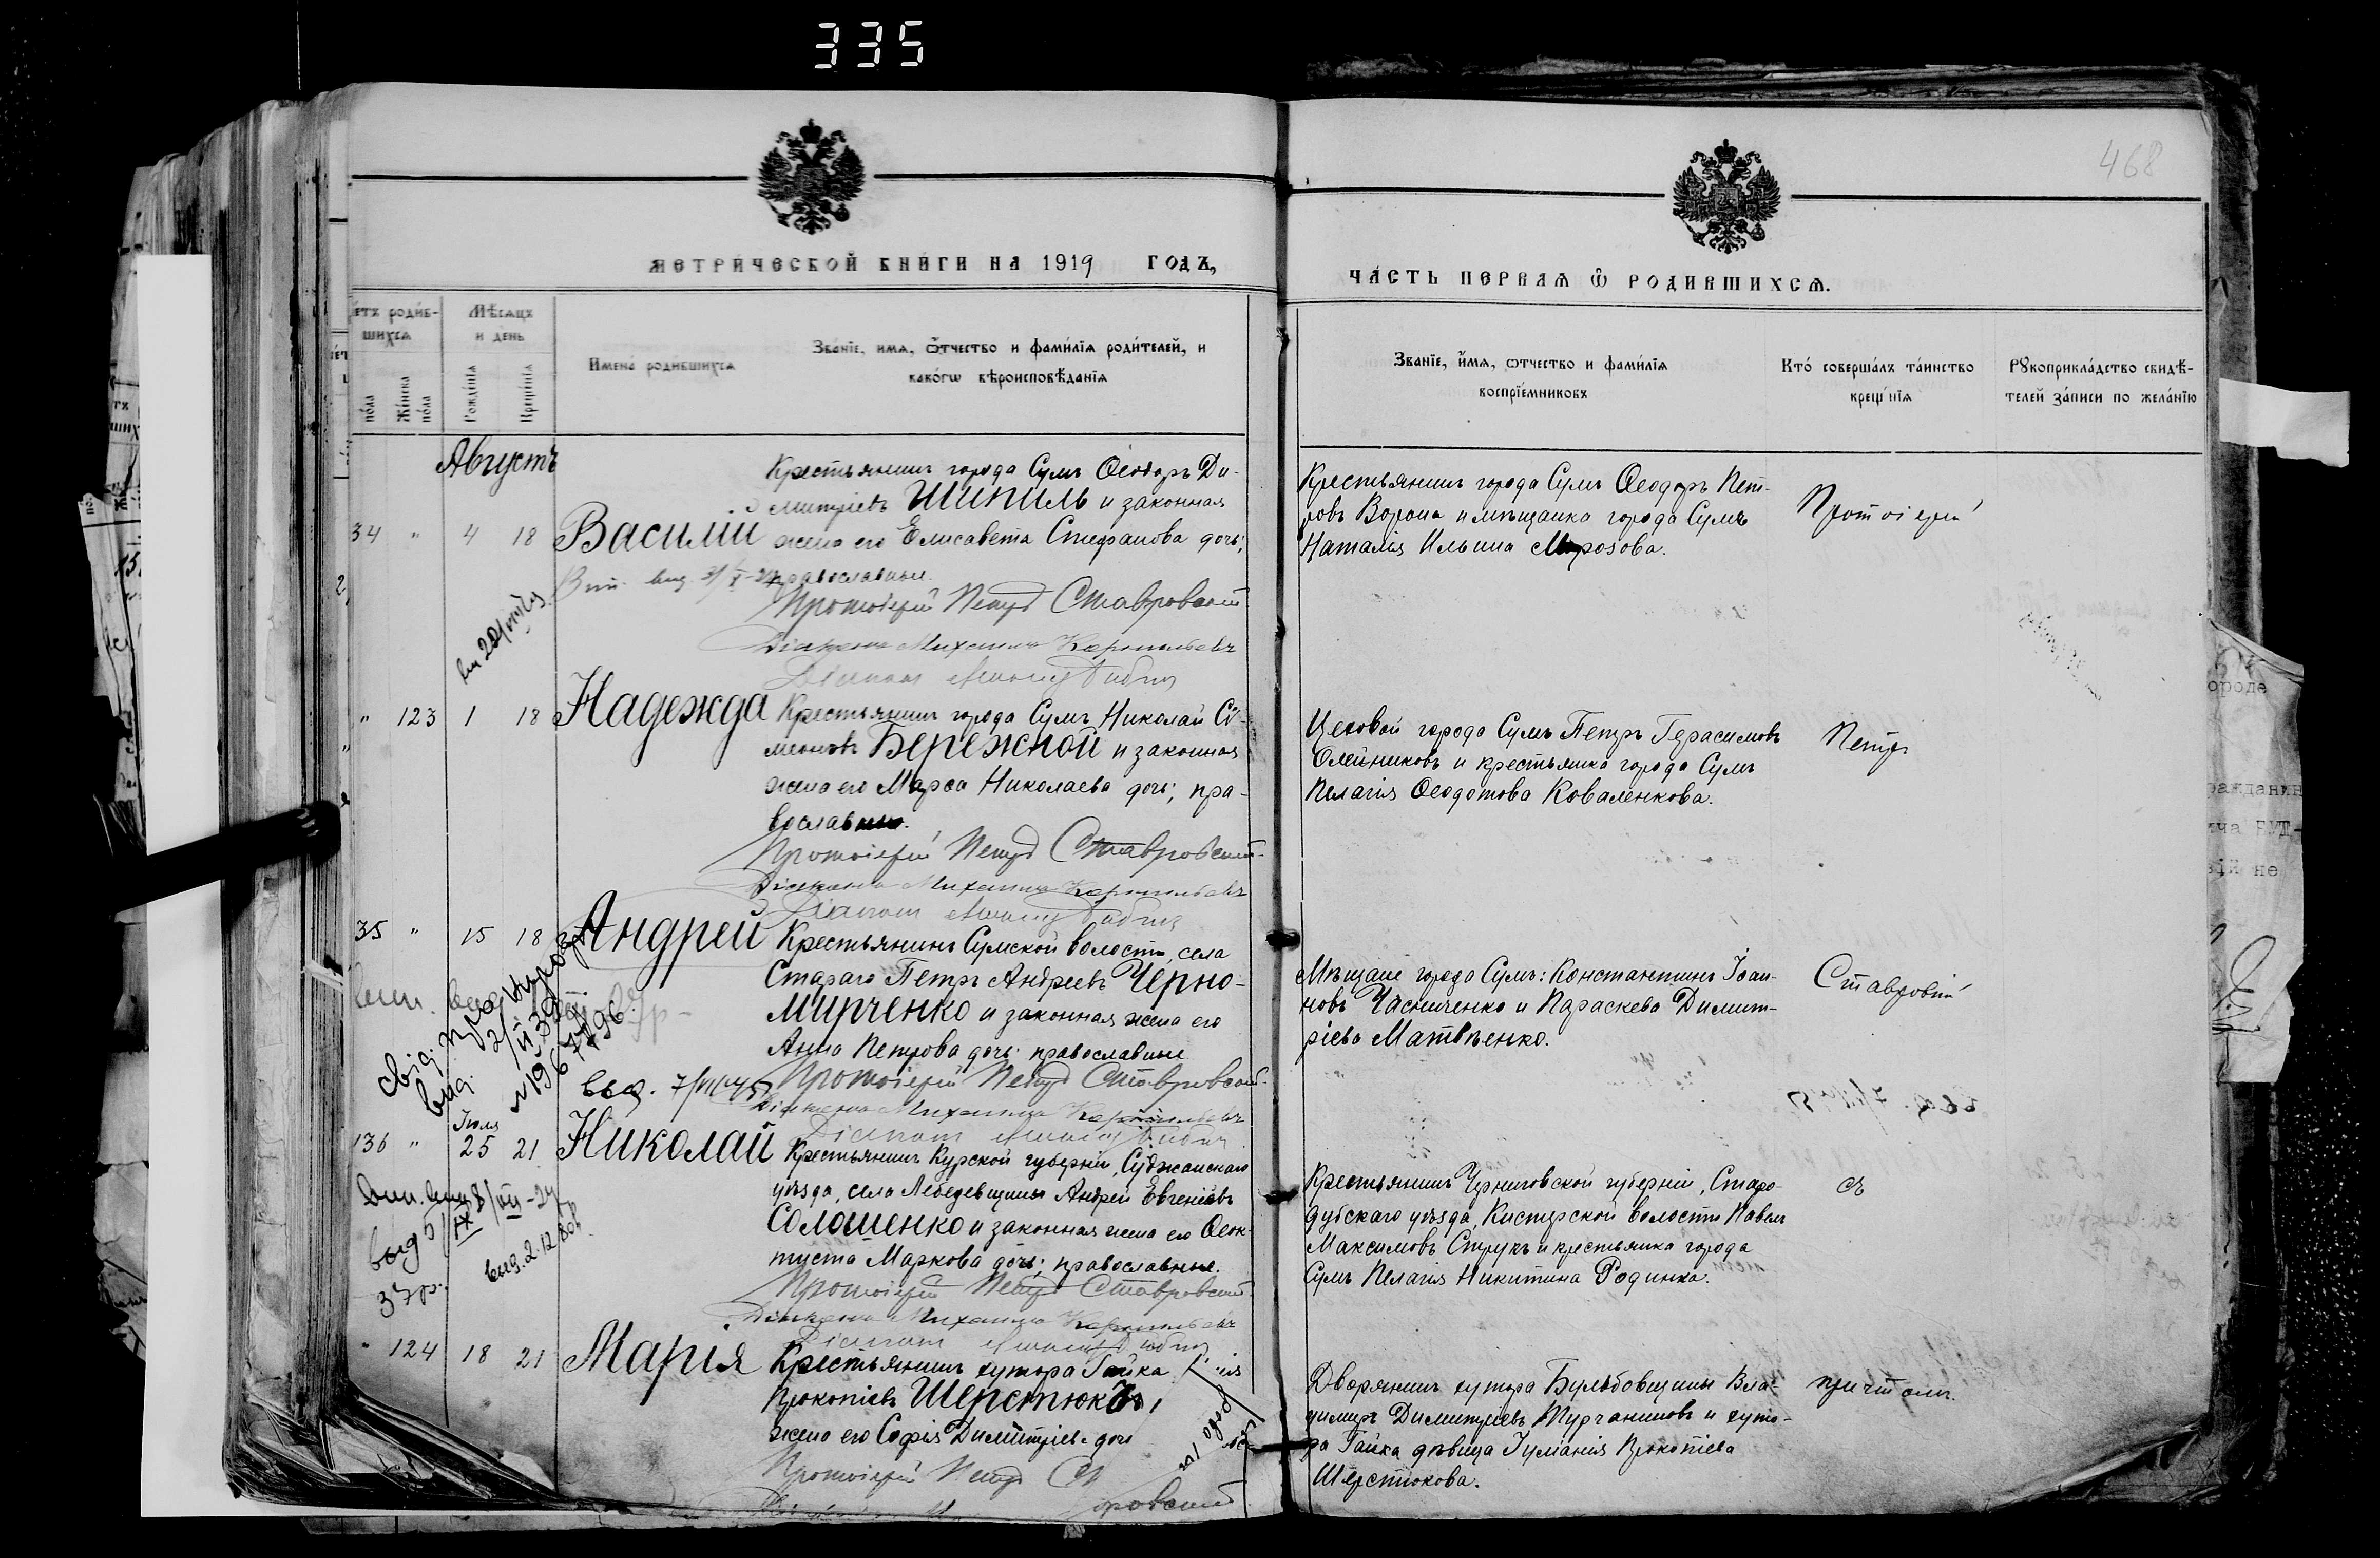 335
468
МЕТРИЧЕСКОЙ КНИГИ НА 1919 ГОДЪ,
ЧАСТЬ ПЕРВАЯ Ѡ РОДИВШИХСЯ.
родив-
шихся
Мѣсяцъ
и день
пола
Женска
пола
Рожденія
Крещенія
Имена родившихся
Званіе, имя, ѻтчество и фамилія родителей, и
какогω вѣроисповѣданія
Званіе, имя, ѿтчество и фамилія
воспріемниковъ
Кто совершалъ таинство
крещенія
Рукоприкладство свидѣ-
телей записи по желанію
Августъ
34 " 4 18 Василій
Крестьянинъ города Сумъ Ѳеодоръ Ди-
митріевъ Шипиль и законная
жена его Елисавета Стефанова дочь;
православные.
Протоіерей Петръ Ставровскій
Діаконъ Михаилъ Корнильевъ
Крестьянинъ города Сумъ Ѳеодоръ Пет-
ровъ Ворона и мѣщанка города Сумъ
Наталія Ильина Морозова.
Протоіерей
" 123 1 18 Надежда
Крестьянинъ города Сумъ Николай Си-
меоновъ Бережной и законная
жена его Марѳа Николаева дочь; пра-
вославные.
Протоіерей Петръ Ставровскій
Діаконъ Михаилъ Корнильевъ
Цеховой города Сумъ Петръ Герасимовъ
Олейниковъ и крестьянка города Сумъ
Пелагія Ѳеодотова Коваленкова.
Петръ
35 " 15 18 Андрей
Крестьянинъ Сумской волости, села
Стараго Петръ Андреевъ Черно-
мирченко и законная жена его
Анна Петрова дочь; православные
Протоіерей Петръ Ставровскій
Діаконъ Михаилъ Корнильевъ
выд. 7/VII 45
Мѣщане города Сумъ: Константинъ Іоан-
новъ Часниченко и Параскева Димит-
ріева Матвѣенко.
Ставровскій
Іюля
136 " 25 21 Николай
Крестьянинъ Курской губерніи, Суджанскаго
уѣзда, села Лебедевщины Андрей Евгеніевъ
Солошенко и законная жена его Ѳеок-
туста Маркова дочь; православные.
Протоіерей Петръ Ставровскій
Діаконъ Михаилъ Корнильевъ
выд. 2.12.80
37 р.
Крестьянинъ Черниговской губерніи, Старо-
дубскаго уѣзда, Кистерской волости Павелъ
Максимовъ Струкъ и крестьянка города
Сумъ Пелагія Никитина Родинка.
съ
" 124 18 21 Марія
Крестьянинъ хутора Гайка
Прокопіевъ Шерстюкъ,
жена его Софія Димитріева дочь
Протоіерей Петръ
Дворянинъ хутора Бульбовщины Вла-
димиръ Димитріевъ Турчаниновъ и хуто-
ра Гайка дѣвица Іуліанія Прокопіева
Шерстюкова.
причтомъ.
ороде
не